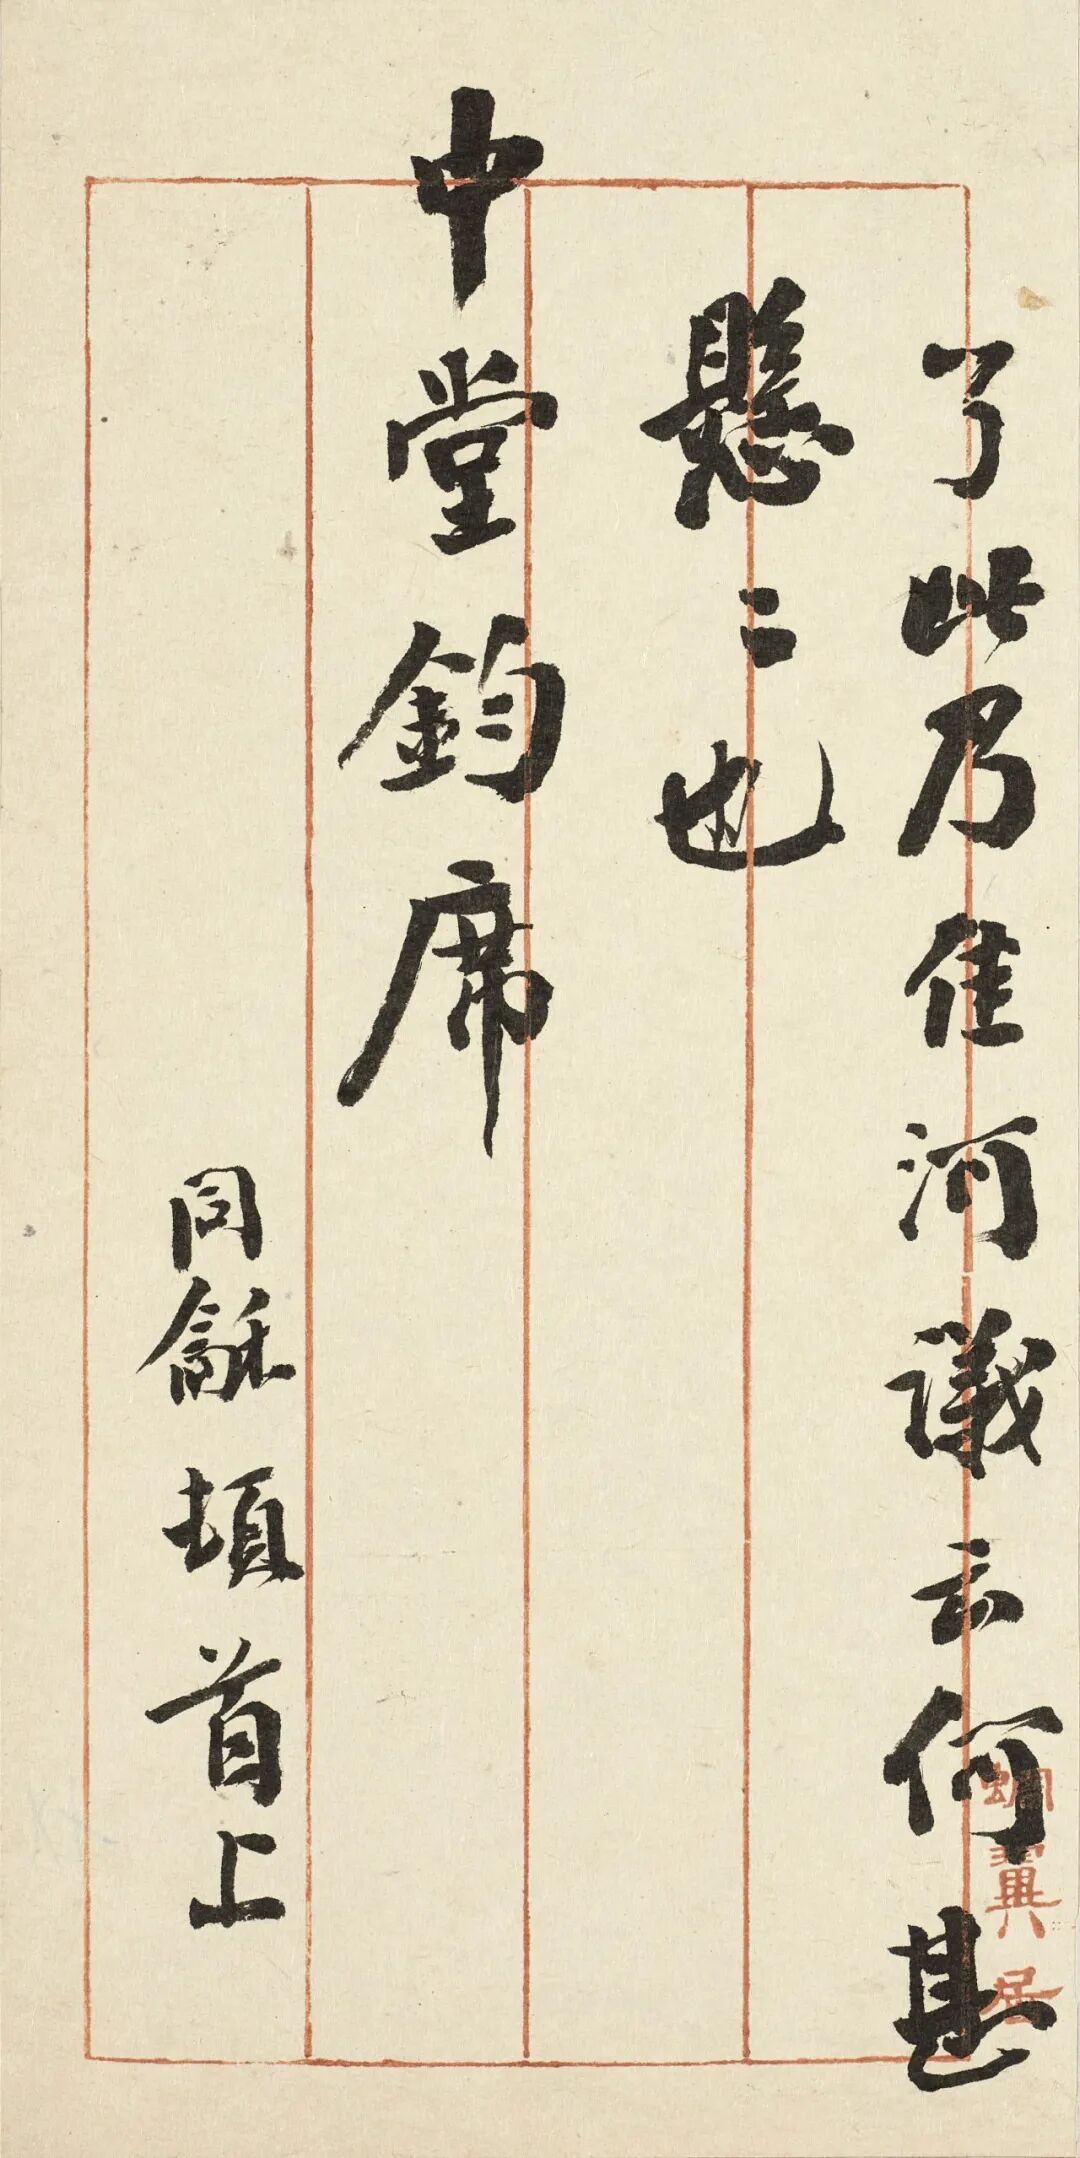 了此乃佳河議云何甚
懸〻也
中堂鈞席
同龢頓首上